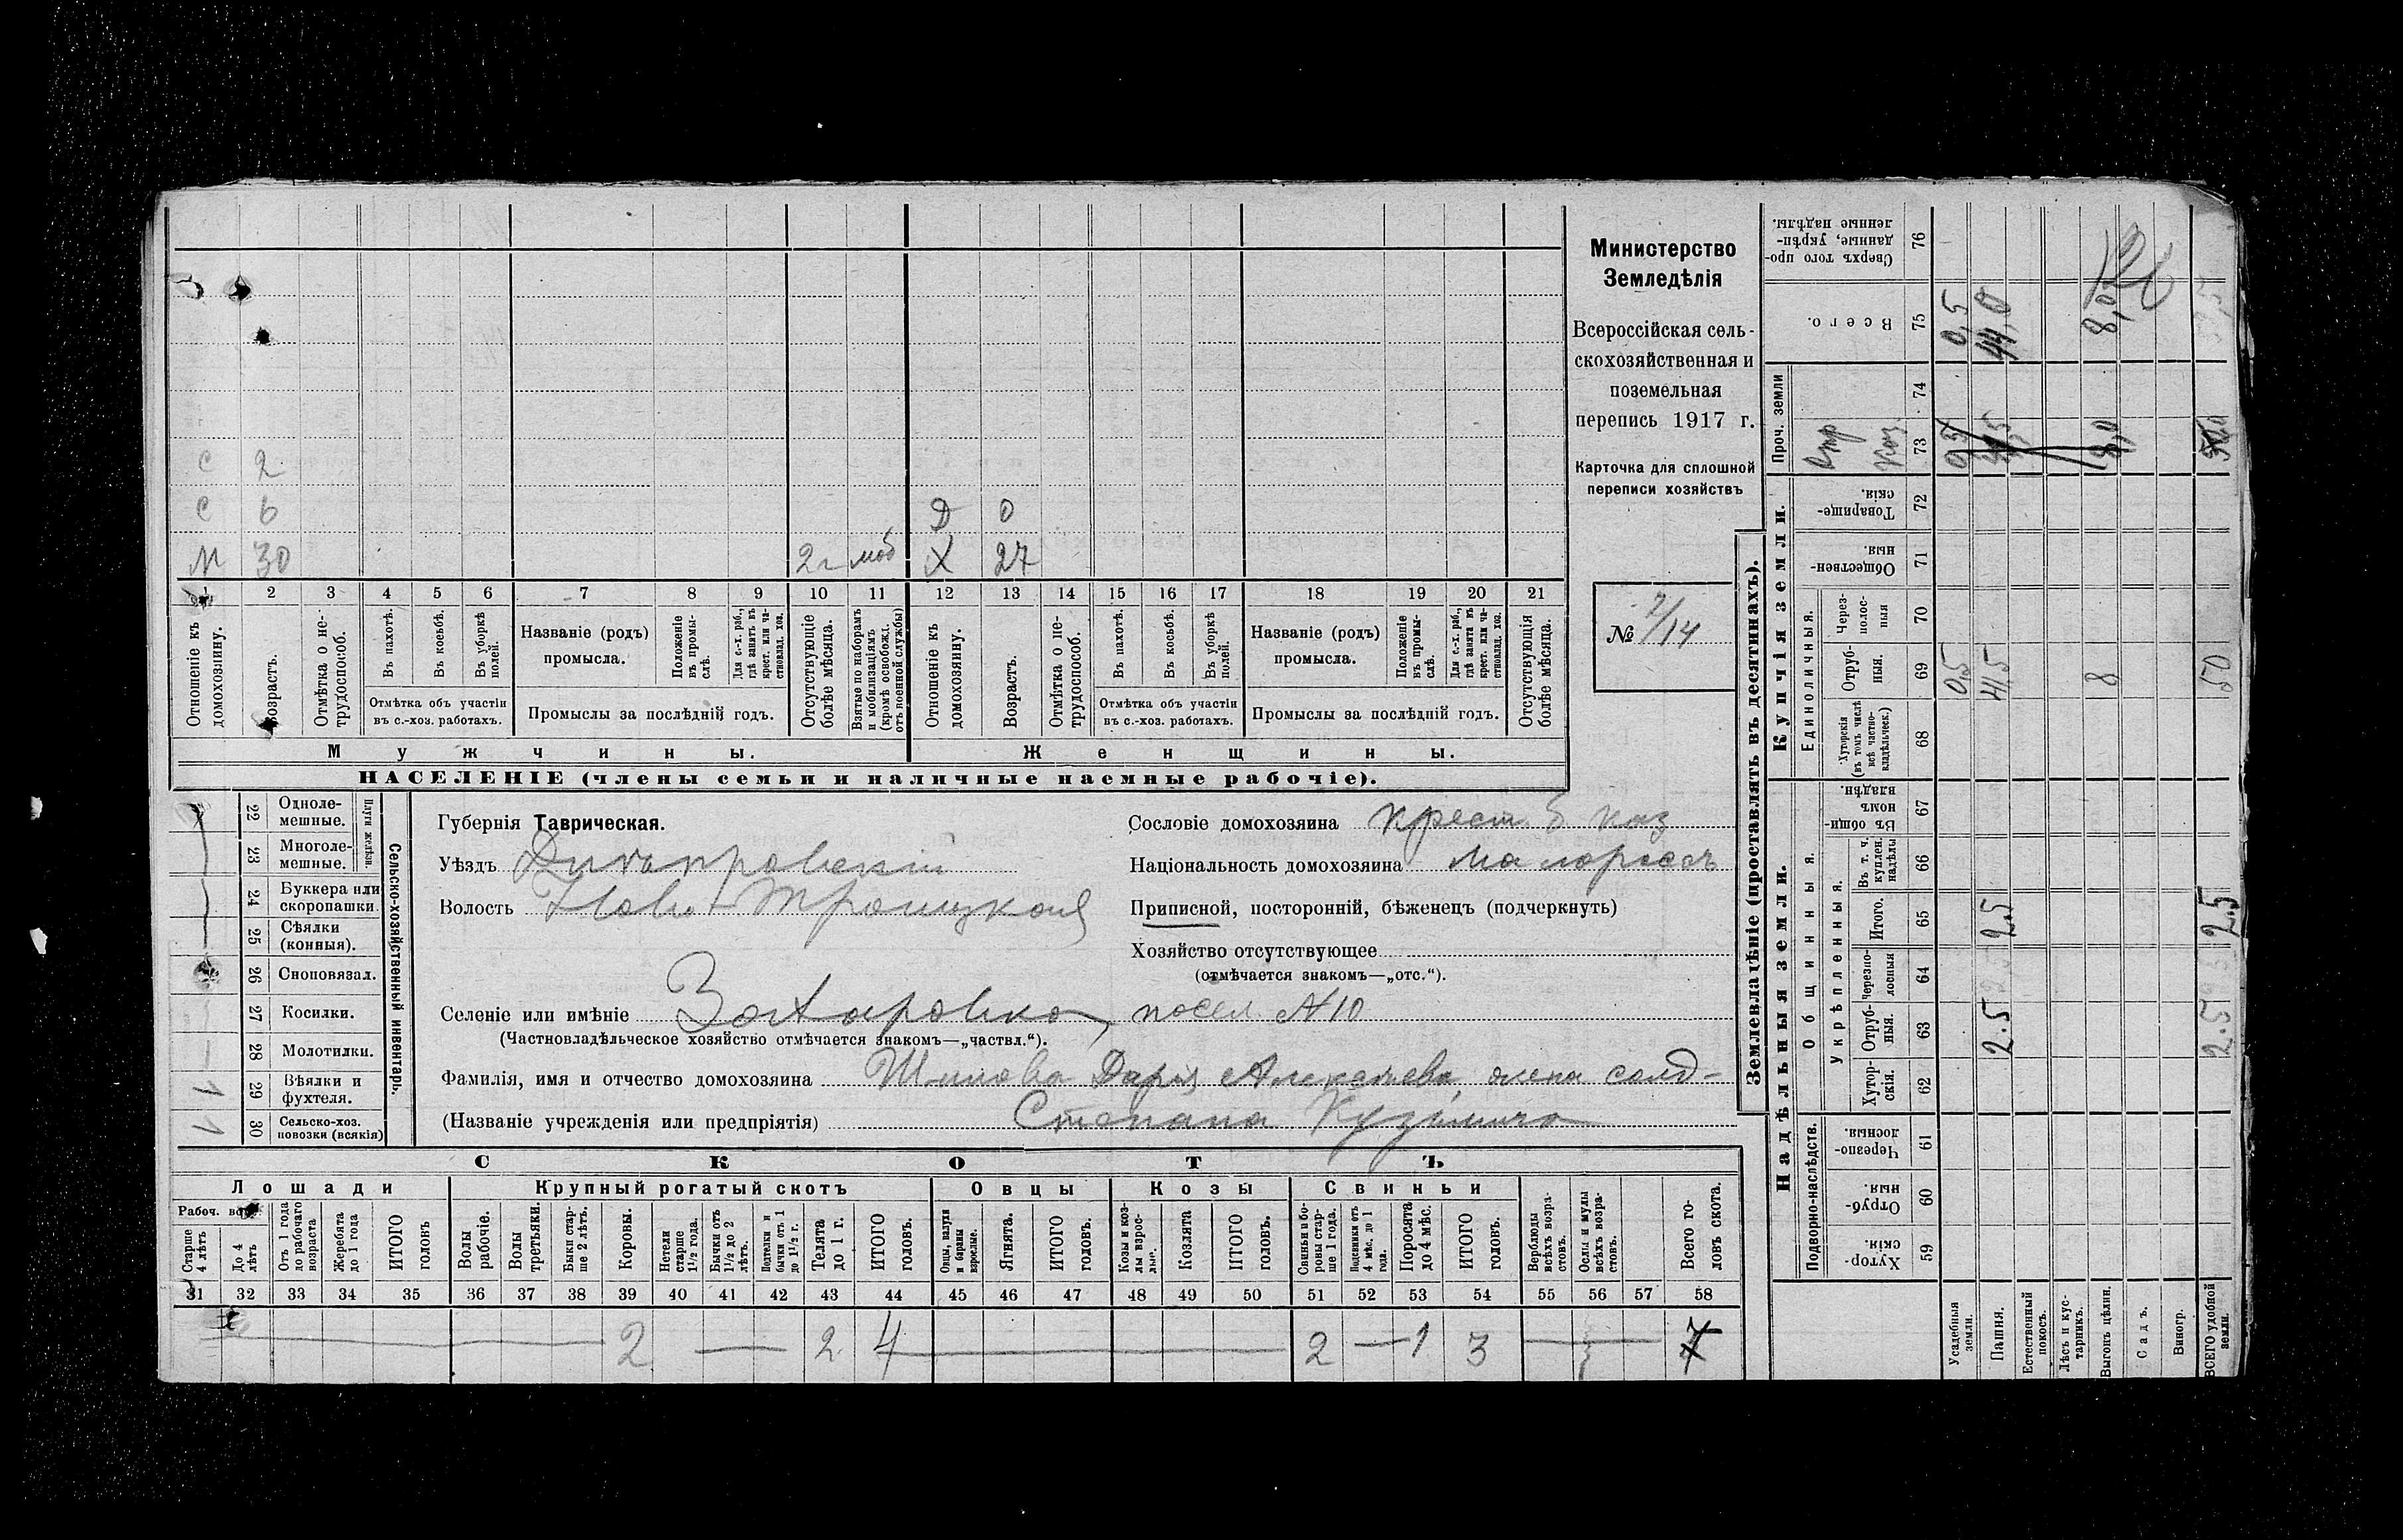 Министерство
Земледѣлія
Всероссійская сель-
скохозяйственная и
поземельная
перепись 1917 г.
Карточка для сплошной
переписи хозяйствъ
№ 7/14
С 2
С 6 Д 0
М 30 2 г моб Х 27
1 2 3 4 5 6 7 8 9 10 11 12 13 14 15 16 17 18 19 20 21
Отношеніе къ домохозяину.
Возрастъ.
Отмѣтка о не-трудоспособ.
Въ пахотѣ.
Въ косьбѣ.
Въ уборкѣ полей.
Отмѣтка объ участіи
въ с.-хоз. работахъ.
Названіе (родъ)
промысла.
Положеніе въ промы-слѣ.
Для с.-х. раб., гдѣ занятъ въ крест. или ча-стновлад. хоз.
Промыслы за послѣдній годъ.
Отсутствующіе болѣе мѣсяца.
Взятые по наборамъ и мобилизаціямъ (кромѣ освобожд. отъ военной службы)
Отношеніе къ домохозяину.
Возрастъ.
Отмѣтка о не-трудоспособ.
Въ пахотѣ.
Въ косьбѣ.
Въ уборкѣ полей.
Отмѣтка объ участіи
въ с.-хоз. работахъ.
Названіе (родъ)
промысла.
Положеніе въ промы-слѣ.
Для с.-х. раб., гдѣ занята въ крест. или ча-стновлад. хоз.
Промыслы за послѣдній годъ.
Отсутствующія болѣе мѣсяца.
Мужчины. Женщины.
НАСЕЛЕНІЕ (члены семьи и наличные наемные рабочіе).
Сельско-хозяйственный инвентарь.
Плуги желѣзн.
22 Одноле-
мешные.
23 Многоле-
мешные.
24 Буккера или
скоропашки.
25 Сѣялки
(конныя).
26 Сноповязал.
27 Косилки.
28 Молотилки.
1 29 Вѣялки и
фухтеля.
1 30 Сельско-хоз.
повозки (всякія)
Губернія Таврическая.
Уѣздъ Днѣпровскій
Волость Ново-Троицкой
Селеніе или имѣніе Захаровка, посел. №10
(Частновладѣльческое хозяйство отмѣчается знакомъ—„частвл.“).
Фамилія, имя и отчество домохозяина Шилова Дарія Алексѣева жена солд-
(Названіе учрежденія или предпріятія) Степана Кузьмича
Сословіе домохозяина крест. б каз
Національность домохозяина Малороссъ
Приписной, посторонній, бѣженецъ (подчеркнуть)
Хозяйство отсутствующее
(отмѣчается знакомъ—„отс.“).
СКОТЪ
Лошади Крупный рогатый скотъ Овцы Козы Свиньи
Рабоч. возр.
Старше 4 лѣтъ
До 4 лѣтъ
Отъ 1 года до рабочаго возраста
Жеребята до 1 года
ИТОГО головъ
Волы рабочіе.
Волы третьяки.
Быки стар-ше 2 лѣтъ.
Коровы.
Нетели старше 1½ года.
Бычки отъ 1½ до 2 лѣтъ.
Подтелки и бычки отъ 1 до 1½ г.
Телята до 1 г.
ИТОГО головъ.
Овцы, валухи и бараны взрослые.
Ягнята.
ИТОГО головъ.
Козы и коз-лы взрос-лые.
Козлята
ИТОГО головъ.
Свиньи и бо-ровы стар-ше 1 года.
Подсвинки отъ 4 мѣс. до 1 года.
Поросята до 4 мѣс.
ИТОГО головъ.
Верблюды всѣхъ возра-стовъ.
Ослы и мулы всѣхъ возра-стовъ.
Всего го-ловъ скота.
31 32 33 34 35 36 37 38 39 40 41 42 43 44 45 46 47 48 49 50 51 52 53 54 55 56 57 58
2 — 2 4 — 2 — 1 3 — 7
Землевладѣніе (проставлять въ десятинахъ).
Надѣльныя земли. Купчія земли. Проч. земли
Подворно-наслѣдств.
Общинныя.
Укрѣпленныя.
Единоличныя.
Хутор-скія. 59
Отруб-ныя. 60
Черезпо-лосныя. 61
Хутор-скія. 62
Отруб-ныя. 63
Черезпо-лосныя 64
Итого. 65
Въ т. ч. куплен. надѣлы 66
Въ общин-номъ владѣн. 67
Хуторскія (въ томъ числѣ всѣ частно-владѣльческ.) 68
Отруб-ныя. 69
Через-полос-ныя 70
Обществен-ныя. 71
Товарище-скія. 72
73
74
Всего. 75
Сверхъ того про-данные, укрѣп-ленные надѣлы. 76
Усадебныя земли. 0,5 0,5
Пашня. 2.5 2.5 41,5 44,0
Естественный покосъ.
Лѣсъ и кус-тарникъ.
Выгонъ цѣлин. 8 8,0 8,0
Садъ.
Виногр.
ВСЕГО удобной земли. 2.5 2.5 50